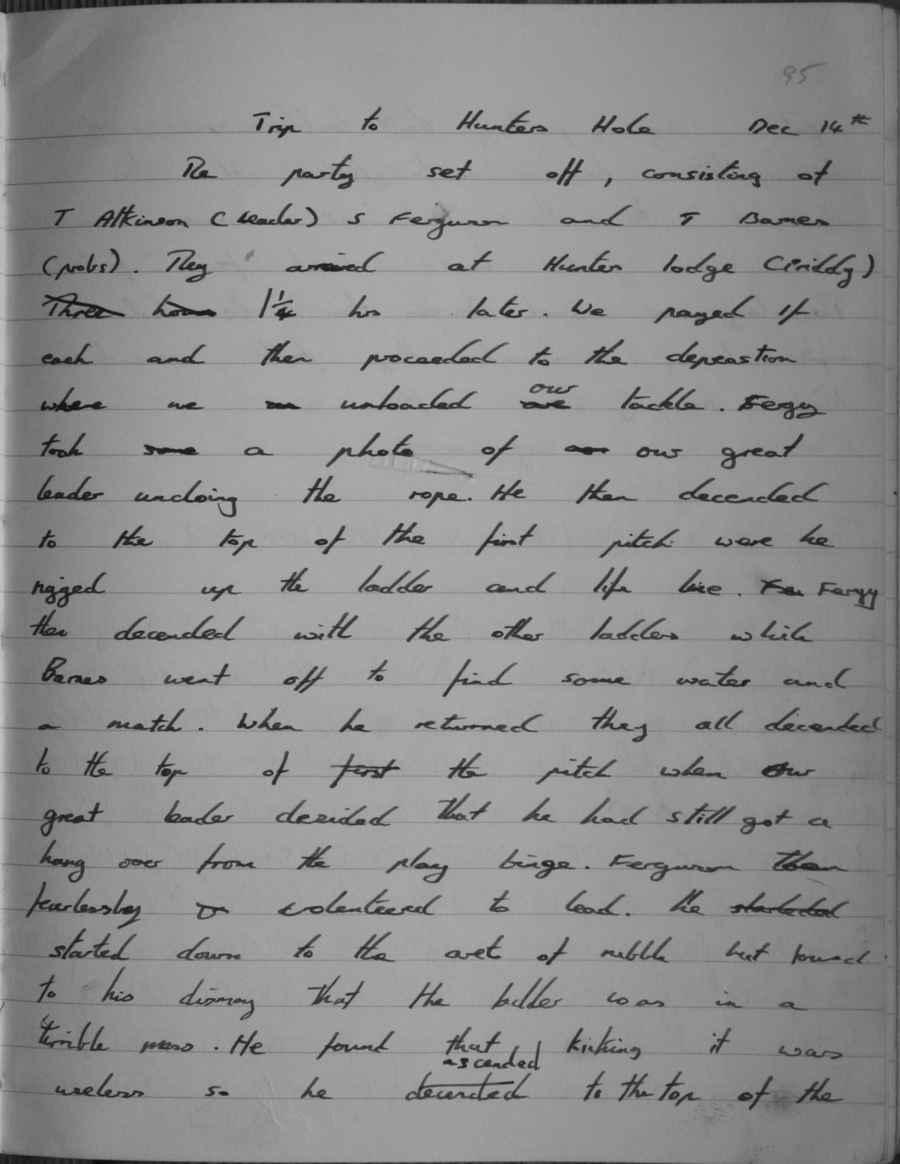 95
Trip to Hunters Hole Dec 14th
The party set off, consisting of
T Atkinson (Leader) S Ferguson and T Barnes
(probs). They arrived at Hunter lodge (Priddy)
Three hours 1¼ hrs later. We payed 1/-
each and then proceeded to the depreastion
where we unloaded our tackle. Fergy
took some a photo of our great
leader uncloing the rope. He then decended
to the top of the first pitch were he
rigged up the ladder and life line. Fergy
then decended with the other ladders while
Barnes went off to find some water and
a match. When he returned they all decended
to the top of first the pitch when our
great leader decided that he had still got a
hang over from the play binge. Ferguson then
fearlessley volenteered to lead. He
started down to the aret of rubble but found
to his dismay that the ladder was in a
terrible mess. He found that kicking it was
useless so he decended ascended to the top of the